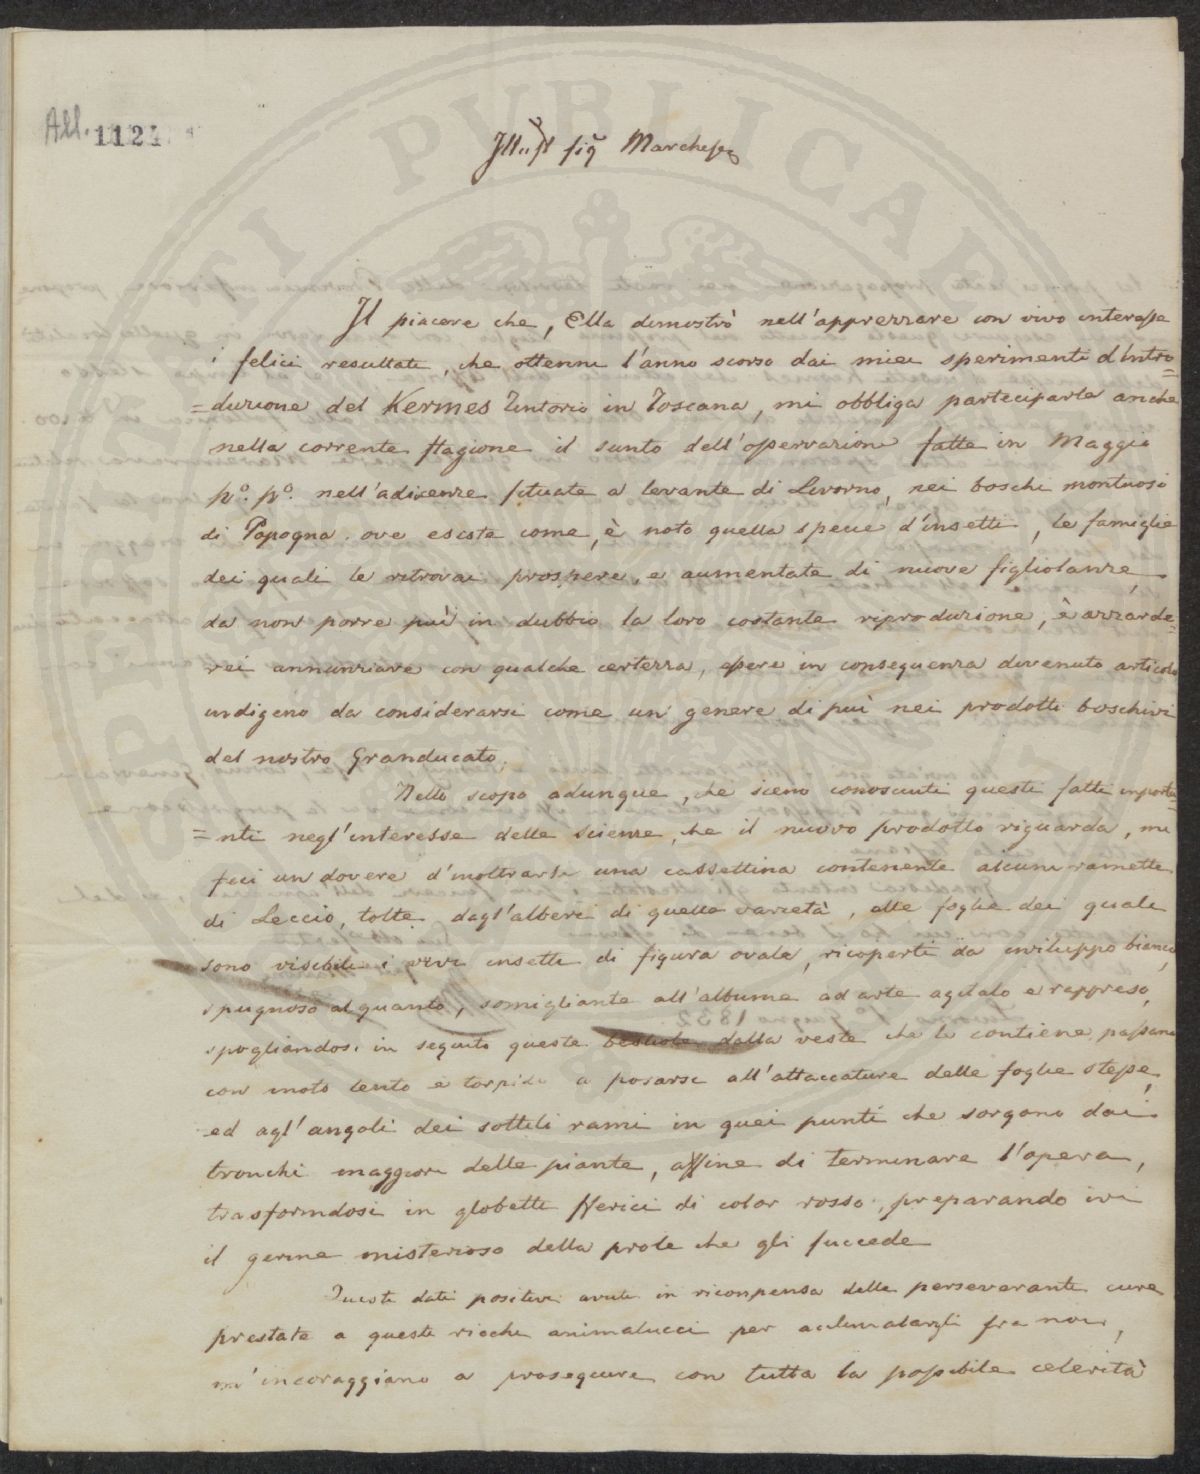 All. 1124
Illust sigr Marchese
Il piacere che, Ella dimostrò nell'apprezzare con vivo interesse
i felici resultati, che ottenni l'anno scorso dai miei sperimenti d'Intro=
=duzione del Kermes Tintorio in Toscana, mi obbliga parteciparle anche
nella corrente stagione il sunto dell'osservazioni fatte in Maggio
p.o p.o nell'adicenze situate a levante di Livorno, nei boschi montuosi
di Popogna ove esiste come, è noto quella specie d'insetti, le famiglie
dei quali le ritrovai prospere, e aumentate di nuove figliolanze,
da non porre più in dubbio la loro costante riproduzione, è azzarde=
rei annunziare con qualche certezza, essere in conseguenza divenuto articolo
indigeno da considerarsi come un genere di più nei prodotti boschivi
del nostro Granducato.
Nello scopo adunque, che sieno conosciuti questi fatti importa=
=nti negl'interesse delle scienze, che il nuovo prodotto riguarda, mi
feci un dovere d'inoltrarle una cassettina contenente alcuni rametti
di Leccio, tolti dagl'alberi di quella varietà, alle foglie dei quali
sono visibili i vivi insetti di figura ovale, ricoperti da inviluppo bianco,
spugnoso alquanto, somigliante all'albume ad arte agitato e rappreso,
spogliandosi in seguito queste bestiole dalla veste che le contiene passano
con moto lento e torpido a posarsi all'attaccature delle foglie stesse,
ed agl'angoli dei sottili rami in quei punti che sorgono dai
tronchi maggiori delle piante, affine di terminare l'opera,
trasformdosi in globetti sferici di color rosso, preparando ivi
il germe misterioso della prole che gli succede
Questi dati positivi avuti in ricompensa delle perseveranti cure
prestate a questi ricchi animalucci per acclimatargli fra noi,
m'incoraggiano a proseguire con tutta la possibile celerità